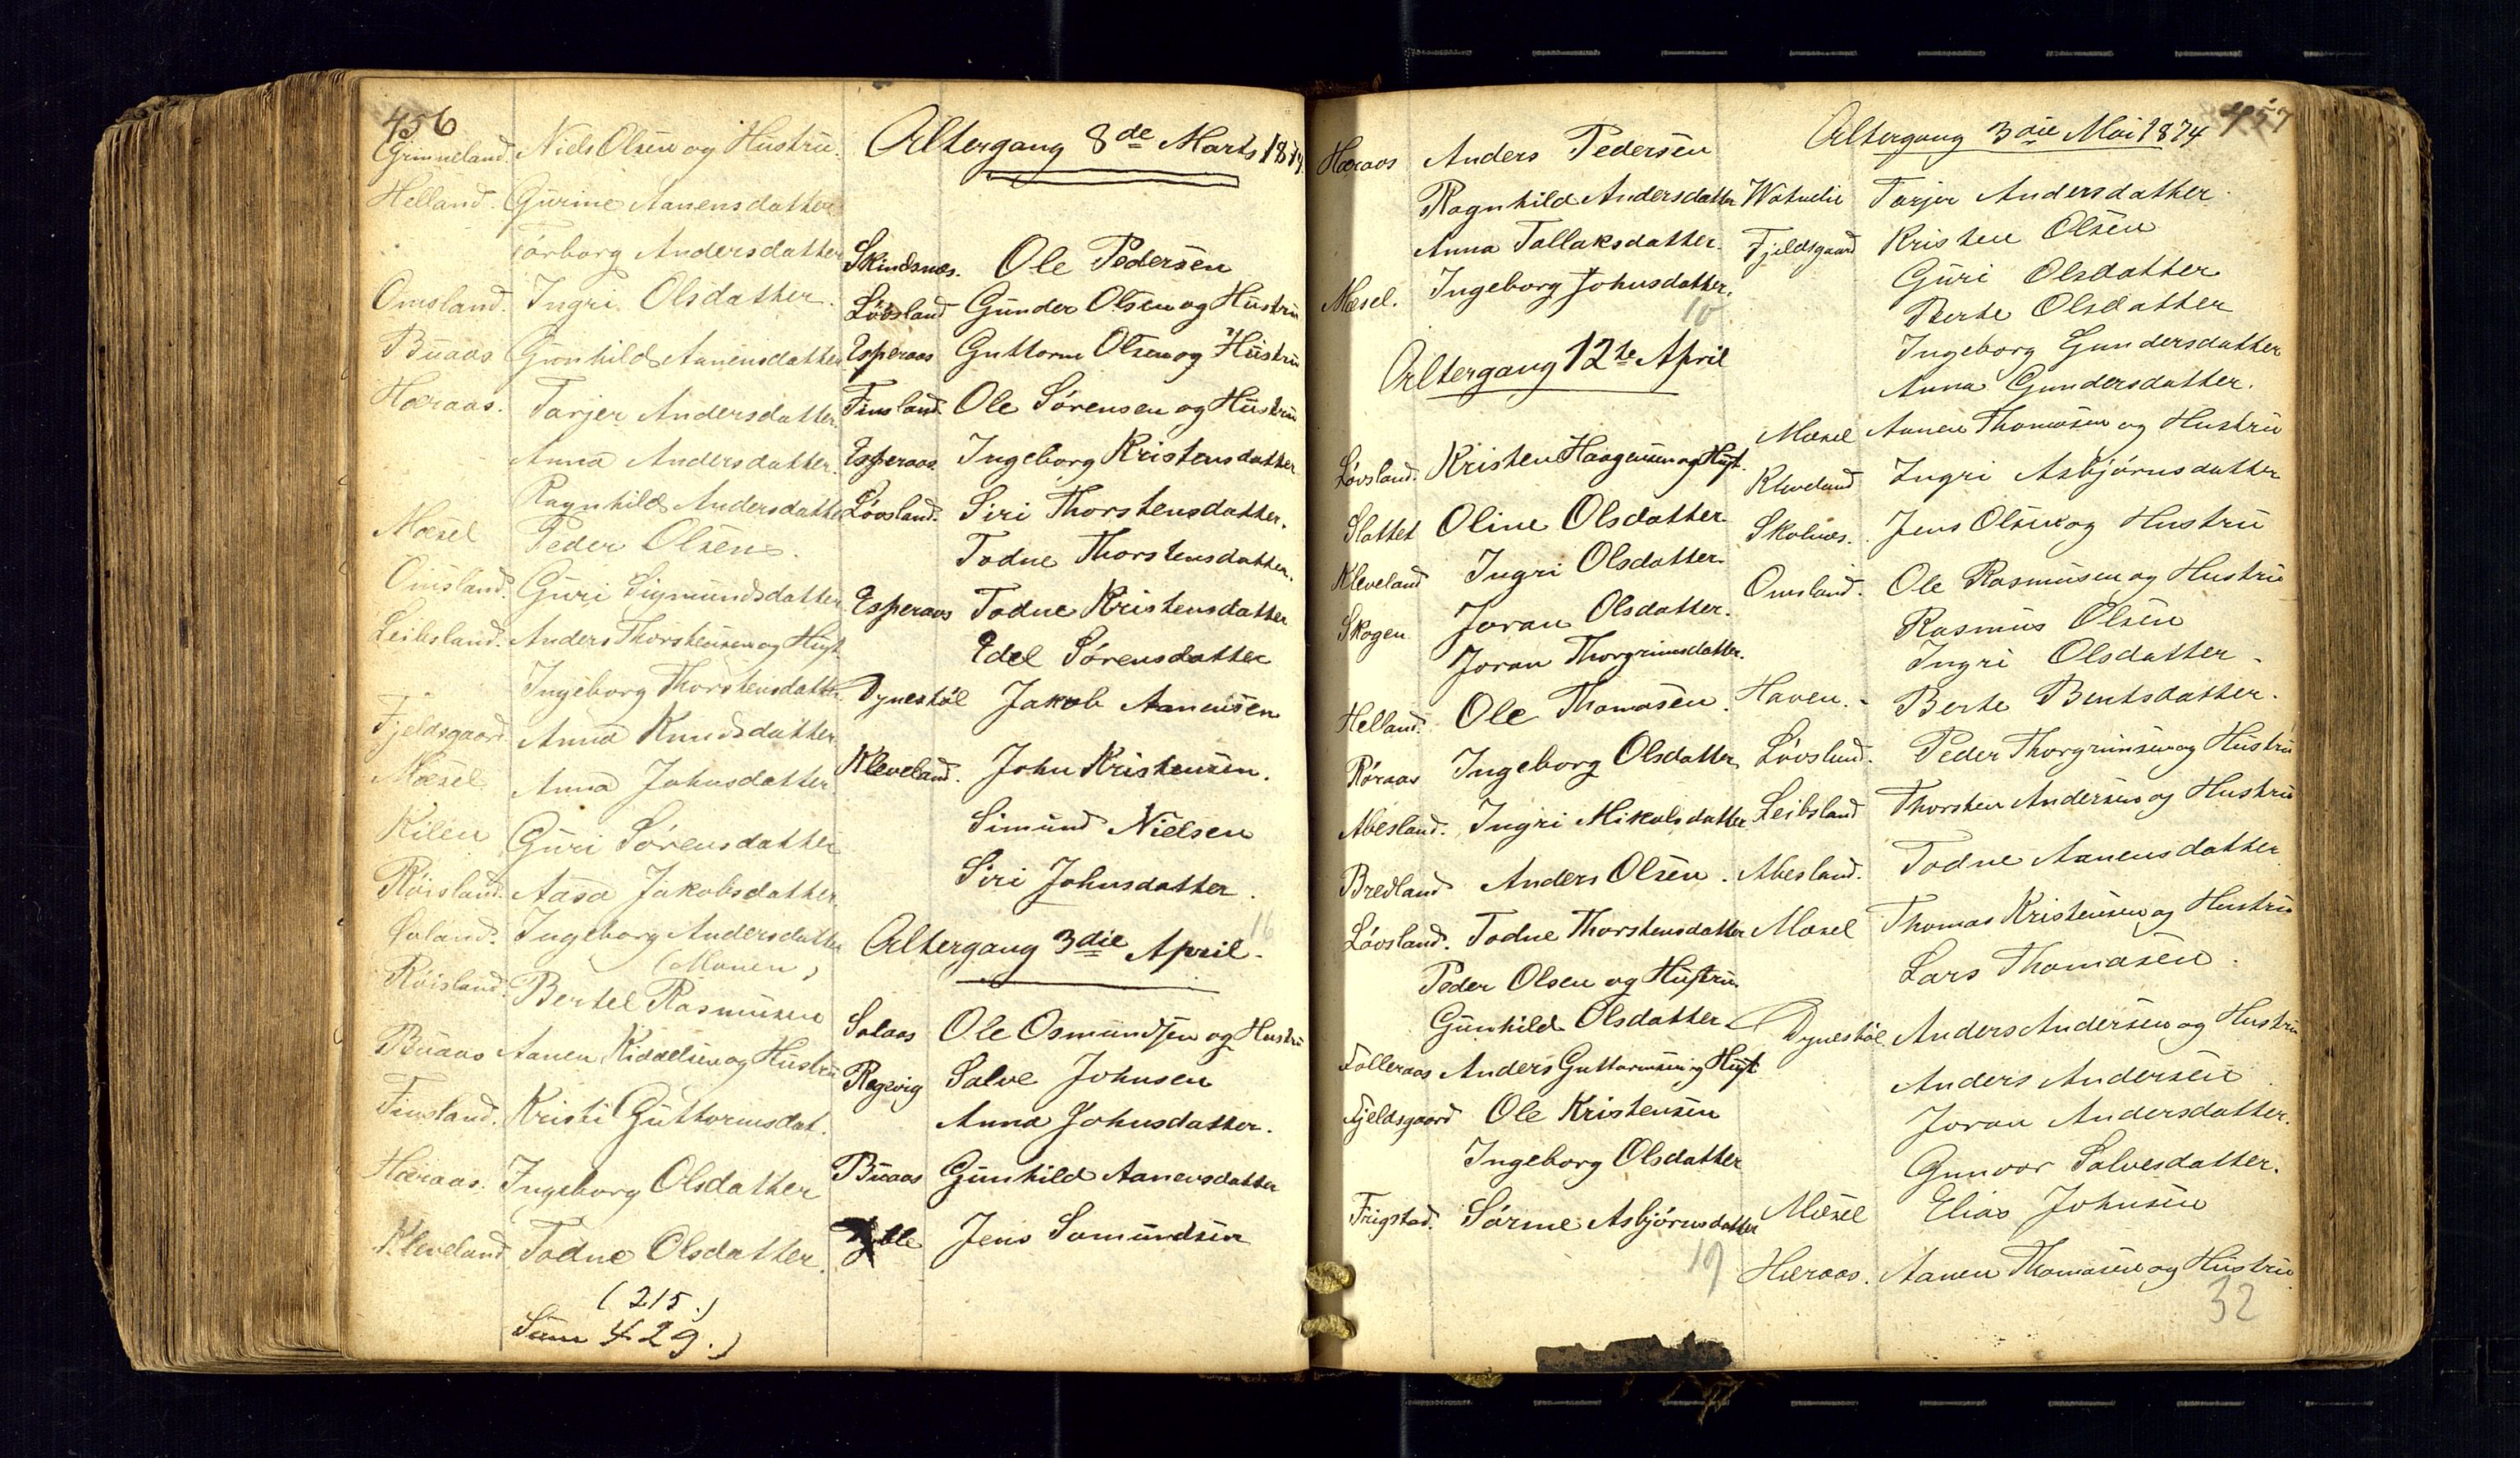 456
Grimeland. Niels Olsen og Hustru.
Helland. Gurine Aanensdatter
Torborg Andersdatter
Omsland. Ingri Olsdatter.
Buaas Gunhild Aanensdatter
Haraas. Tarjer Andersdatter.
Anna Andersdatter.
Ragnhild Andersdatter
Mæsel Peder Olsen.
Omsland. Guri Sigmundsdatter
Leibsland. Anders Thorstensen og Hust.
Ingeborg Thorstensdatter
Fjeldsgaard. Anna Knudsdatter.
Mæsel Anna Johnsdatter
Kilen Guri Sörensdatter
Röisland. Aasa Jakobsdatter.
Ingeborg Andersdatter
(Monen)
Röisland. Bertel Rasmusen
Buaas Aanen Kiddelsen og Hustru
Finsland. Kristi Guttormsdat.
Haraas. Ingeborg Olsdatter
Kleveland Todne Olsdatter.
(215.)
Sum 429.)
Altergang 8de Marts 1874.
Skindsnæs. Ole Pedersen
Lövsland Gunder Olsen og Hustru
Esperaas Guttorm Olsen og Hustru
Finsland. Ole Sörensen og Hustru
Esperaas. Ingeborg Kristensdatter
Lövsland. Siri Thorstensdatter.
Todne Thorstensdatter.
Esperaas Todne Kristensdatter
Edel Sörensdatter
Dynestöl Jakob Aanensen
Kleveland. John Kristensen.
Simund Nielsen
Siri Johnsdatter.
16
Altergang 3die April.
Salaas Ole Osmundsen og Hustru
Regevig Salve Johnsen
Anna Johnsdatter.
Buaas Gunhild Aanensdatter
Jens Somundsen
Haraas Anders Pedersen
Ragnhild Andersdatter
Anna Tallaksdatter.
Mæsel. Ingeborg Johnsdatter.
10
Altergang 12te April
Lövsland. Kristen Haagensen og Hust.
Slattet Oline Olsdatter
Kleveland Ingri Olsdatter
Skogen Joran Olsdatter.
Joran Thorgrimsdatter.
Helland. Ole Thomasen.
Röraas Ingeborg Olsdatter
Abesland. Ingri Mikalsdatter
Bredland Anders Olsen.
Lövsland. Todne Thorstensdatter
Peder Olsen og Hustru.
Gunhild Olsdatter
Folleraas Anders Guttormsen og Hust
Fjeldsgaard Ole Kristensen
Ingeborg Olsdatter
Frigstad. Sörine Asbjörnsdatter
19
457
Altergang 3die Mai 1874
Watnelie Tarjer Andersdatter.
Fjeldsgaard Kristen Olsen
Guri Olsdatter
Berte Olsdatter
Ingeborg Gundersdatter
Anna Gundersdatter.
Mæsel Aanen Thomasen og Hustru
Kleveland Ingri Asbjörnsdatter
Skolnæs. Jens Olsen og Hustru
Omsland. Ole Rasmusen og Hustru
Rasmus Olsen
Ingri Olsdatter.
Haven. Berte Bentsdatter.
Lövsland. Peder Thorgrimsen og Hustru
Leibsland Thorsten Andersen og Hustru
Abesland. Todne Aanensdatter
Mæsel Thomas Kristensen og Hustru
Lars Thomasen.
Dynestöl. Anders Andersen og Hustru
Anders Andersen
Joran Andersdatter.
Gunvor Salvesdatter.
Mæsel Elias Johnsen
Haraas. Aanen Thomasen og Hustru
32